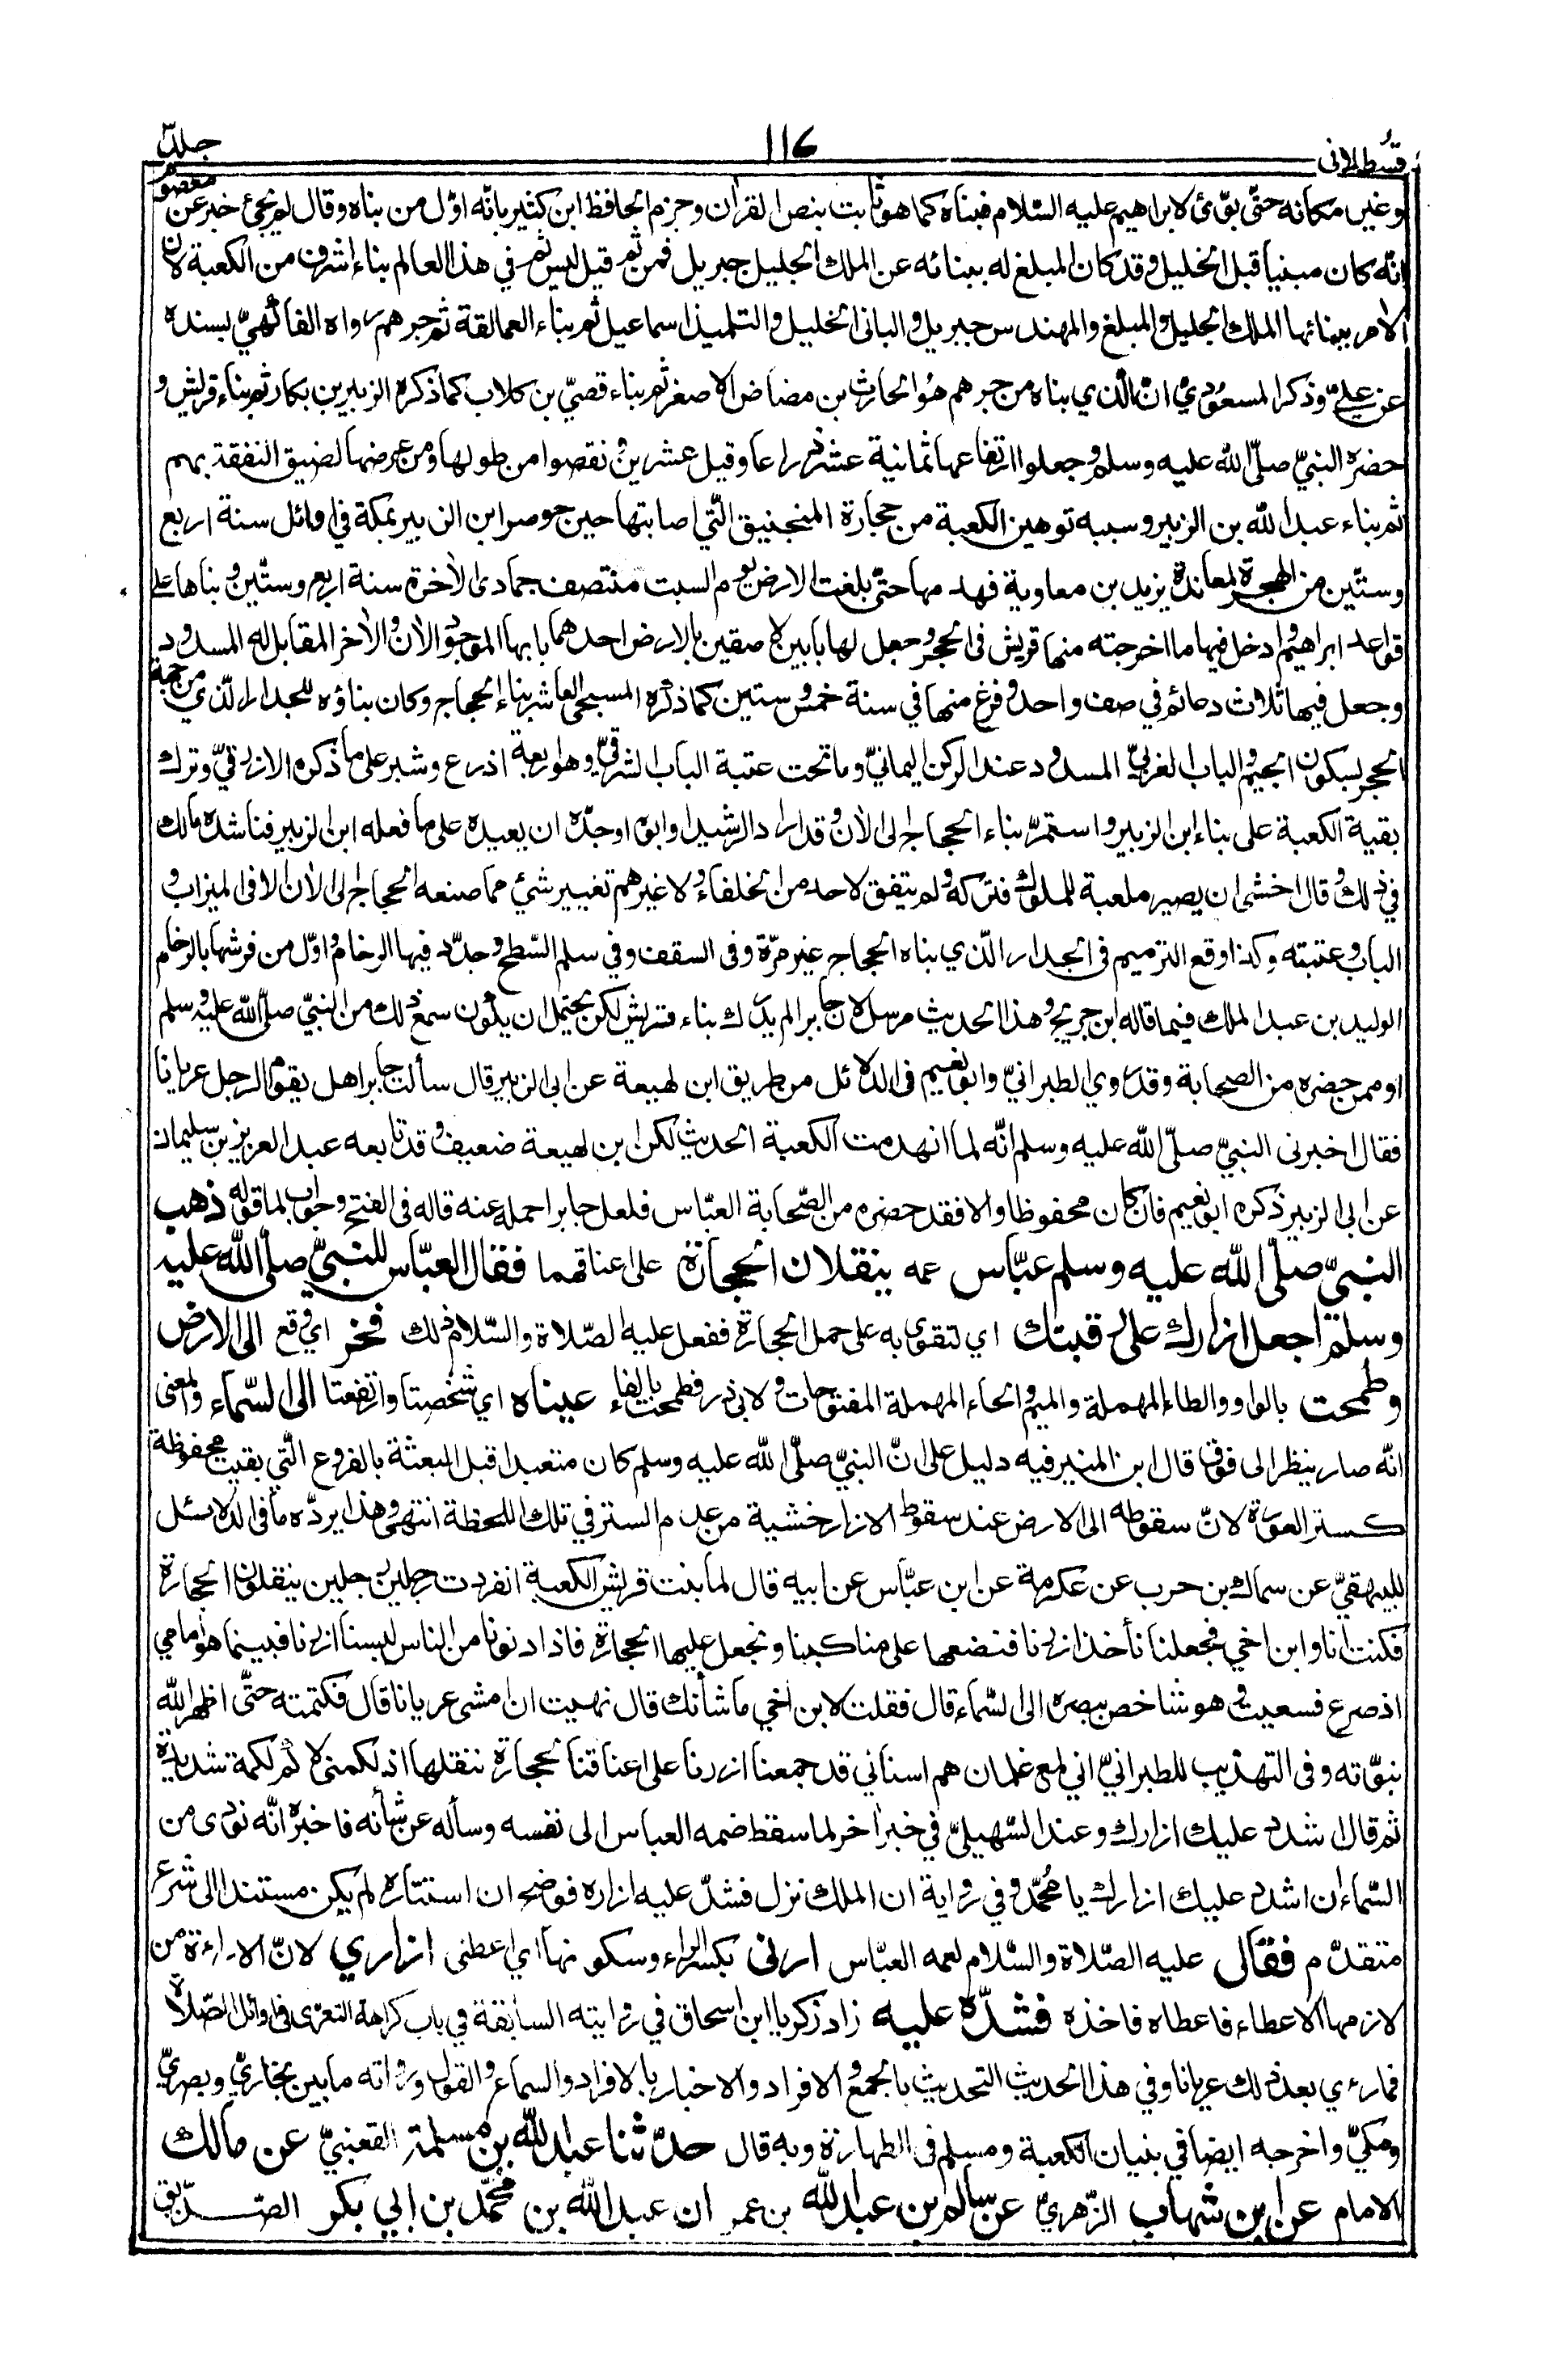 قسطلانى
١١٧
جلد
وغير مكانه حتى بوّئ لابراهيم عليه السّلام فبناه كما هو ثابت بنص القران وجزم الحافظ ابن كثير بانّه اوّل من بناه وقال لم يجئ خبر عن معصوم
انّه كان مبنيا قبل الخليل وقد كان المبلغ له ببنائه عن الملك الجليل جبريل فمن ثم قيل ليس ثم في هذا العالم بناء اشرف من الكعبة لان
الامر ببنائها الملك الجليل والمبلغ والمهندس جبريل والبانى الخليل والتلميذ اسماعيل ثم بناء العمالقة ثم جرهم رواه الفاكهيّ بسنده
عن عليّ وذكر المسعودي انّ الّذي بناه من جرهم هو الحارث بن مضاض الاصغر ثم بناء قصيّ بن كلاب كما ذكره الزبير بن بكار ثم بناء قريش و
حضره النبيّ صلّى الله عليه وسلم وجعلوا ارتفاعها ثمانية عشر ذراعا وقيل عشرين ونقصوا من طولها ومن عرضها لضيق النفقة بهم
ثم بناء عبد الله بن الزبير وسببه توهين الكعبة من حجارة المنجنيق الّتي اصابتها حين حوصر ابن الزبير بمكة في اوائل سنة اربع
وستّين من الهجرة لمعاندة يزيد بن معاوية فهدمها حتّى بلغت الارض يوم السبت منتصف جمادى الاخرة سنة اربع وستّين وبناها على
قواعد ابراهيم وادخل فيها ما اخرجته منها قريش فى الحجر وجعل لها بابين لاصقين بالارض احدهما بابها الموجود الان والاخر المقابل له المسدود
وجعل فيها ثلاث دعائم في صف واحد وفرغ منها في سنة خمس وستين كما ذكره المسبحي العاشر بناء الحجاج وكان بناؤه للجدار الّذي من جهة
الحجر بسكون الجيم والباب الغربيّ المسدود عند الركن اليمانيّ وما تحت عتبة الباب الشرقيّ وهو اربعة اذرع وشبر على ما ذكره الازرقيّ وترك
بقية الكعبة على بناء ابن الزبير واستمرّ بناء الحجاج الى الان وقد اراد الرشيد او ابوه او جدّه ان يعيده على ما فعله ابن الزبير فناشده مالك
في ذلك وقال اخشى ان يصير ملعبة للملوك فتركه ولم يتفق لاحد من الخلفاء ولا غيرهم تغيير شئ مما صنعه الحجاج الى الان الا فى الميزاب و
الباب وعتبته وكذا وقع الترميم فى الجدار الّذي بناه الحجاج غير مرّة وفى السقف وفي سلم السّطح وجدّد فيها الرخام واوّل من فرشها بالرخام
الوليد بن عبد الملك فيما قاله ابن جريج وهذا الحديث مرسل لان جابرا لم يدرك بناء قريش لكن يحتمل ان يكون سمع ذلك من النبيّ صلّى الله عليه وسلم
او ممن حضره من الصحابة وقد روي الطبرانيّ وابو نعيم فى الدلائل من طريق ابن لهيعة عن ابى الزبير قال سألت جابرا هل يقوم الرجل عريانا
فقال اخبرنى النبيّ صلّى الله عليه وسلم انّه لما انهدمت الكعبة الحديث لكن ابن لهيعة ضعيف وقد تابعه عبد العزيز بن سليمان
عن ابى الزبير ذكره ابو نعيم فان كان محفوظا والا فقد حضره من الصّحابة العبّاس فلعل جابرا حمله عنه قاله فى الفتح وجواب لما قوله ذهب
النبيّ صلّى الله عليه وسلم عبّاس عمه ينقلان الحجارة على اعناقهما فقال العبّاس للنبيّ صلّى الله عليه
وسلم اجعل ازارك على رقبتك اي لتقوى به على حمل الحجارة ففعل عليه الصّلاة والسّلام ذلك فخر اي وقع الى الارض
وطمحت بالواو والطاء المهملة والميم والحاء المهملة المفتوحات ولابى ذر فطمحت بالفاء عيناه اي شخصتا وارتفعتا الى السّماء والمعنى
انّه صار ينظر الى فوق قال ابن المنير فيه دليل على انّ النبيّ صلّى الله عليه وسلم كان متعبدا قبل البعثة بالفروع الّتي بقيت محفوظة
كستر العورة لانّ سقوطه الى الارض عند سقوط الازار خشية من عدم الستر في تلك اللحظة انتهى وهذا يردّه ما فى الدلائل
للبيهقيّ عن سماك بن حرب عن عكرمة عن ابن عبّاس عن ابيه قال لما بنت قريش الكعبة انفردت رجلين رجلين ينقلون الحجارة
فكنت انا وابن اخي فجعلنا نأخذ ازرنا فنضعها على مناكبنا ونجعل عليها الحجارة فاذا دنونا من الناس لبسنا ازرنا فبينما هو امامي
اذ صرع فسعيت وهو شاخص ببصره الى السّماء قال فقلت لابن اخي ما شأنك قال نهيت ان امشى عريانا قال فكتمته حتّى اظهر الله
نبوّته وفى التهذيب للطبرانيّ اني لمع غلمان هم اسناني قد جمعنا ازرنا على اعناقنا لحجارة ننقلها اذ لكمنى لاكم لكمة شديدة
ثم قال اشدد عليك ازارك وعند السّهيليّ في خبر اخر لما سقط ضمه العباس الى نفسه وسأله عن شأنه فاخبره انّه نودى من
السّماء ان اشدد عليك ازارك يا محمّد وفي رواية ان الملك نزل فشدّ عليه ازاره فوضح ان استتاره لم يكن مستندا الى شرع
متقدّم فقال عليه الصّلاة والسّلام لعمه العبّاس ارنى بكسر الراء وسكونها اي اعطنى ازاري لانّ الاراءة من
لازمها الاعطاء فاعطاه فاخذه فشدّه عليه زاد زكريا ابن اسحاق في روايته السابقة في باب كراهة التعرى فى اوائل الصّلاة
فما رءي بعد ذلك عريانا وفي هذا الحديث التحديث بالجمع والافراد والاخبار بالافراد والسماع والقول ورواته ما بين بخاريّ وبصريّ
ومكيّ واخرجه ايضا في بنيان الكعبة ومسلم فى الطهارة وبه قال حدّثنا عبد الله بن مسلمة القعنبيّ عن مالك
الامام عن ابن شهاب الزّهريّ عن سالم بن عبد الله بن عمر ان عبد الله بن محمّد بن ابي بكر الصّدّيق